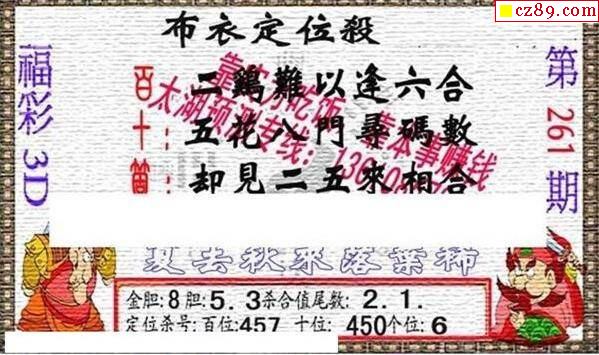 cz89.com
布衣定位殺
福彩3D
第261期
百：二鷄難以逢六合
十：五花八門尋碼數
個：却見二五來相合
夏去秋來落葉稀
金胆:8胆:5.3杀合值尾数:2.1.
定位杀号:百位:457 十位:450个位:6